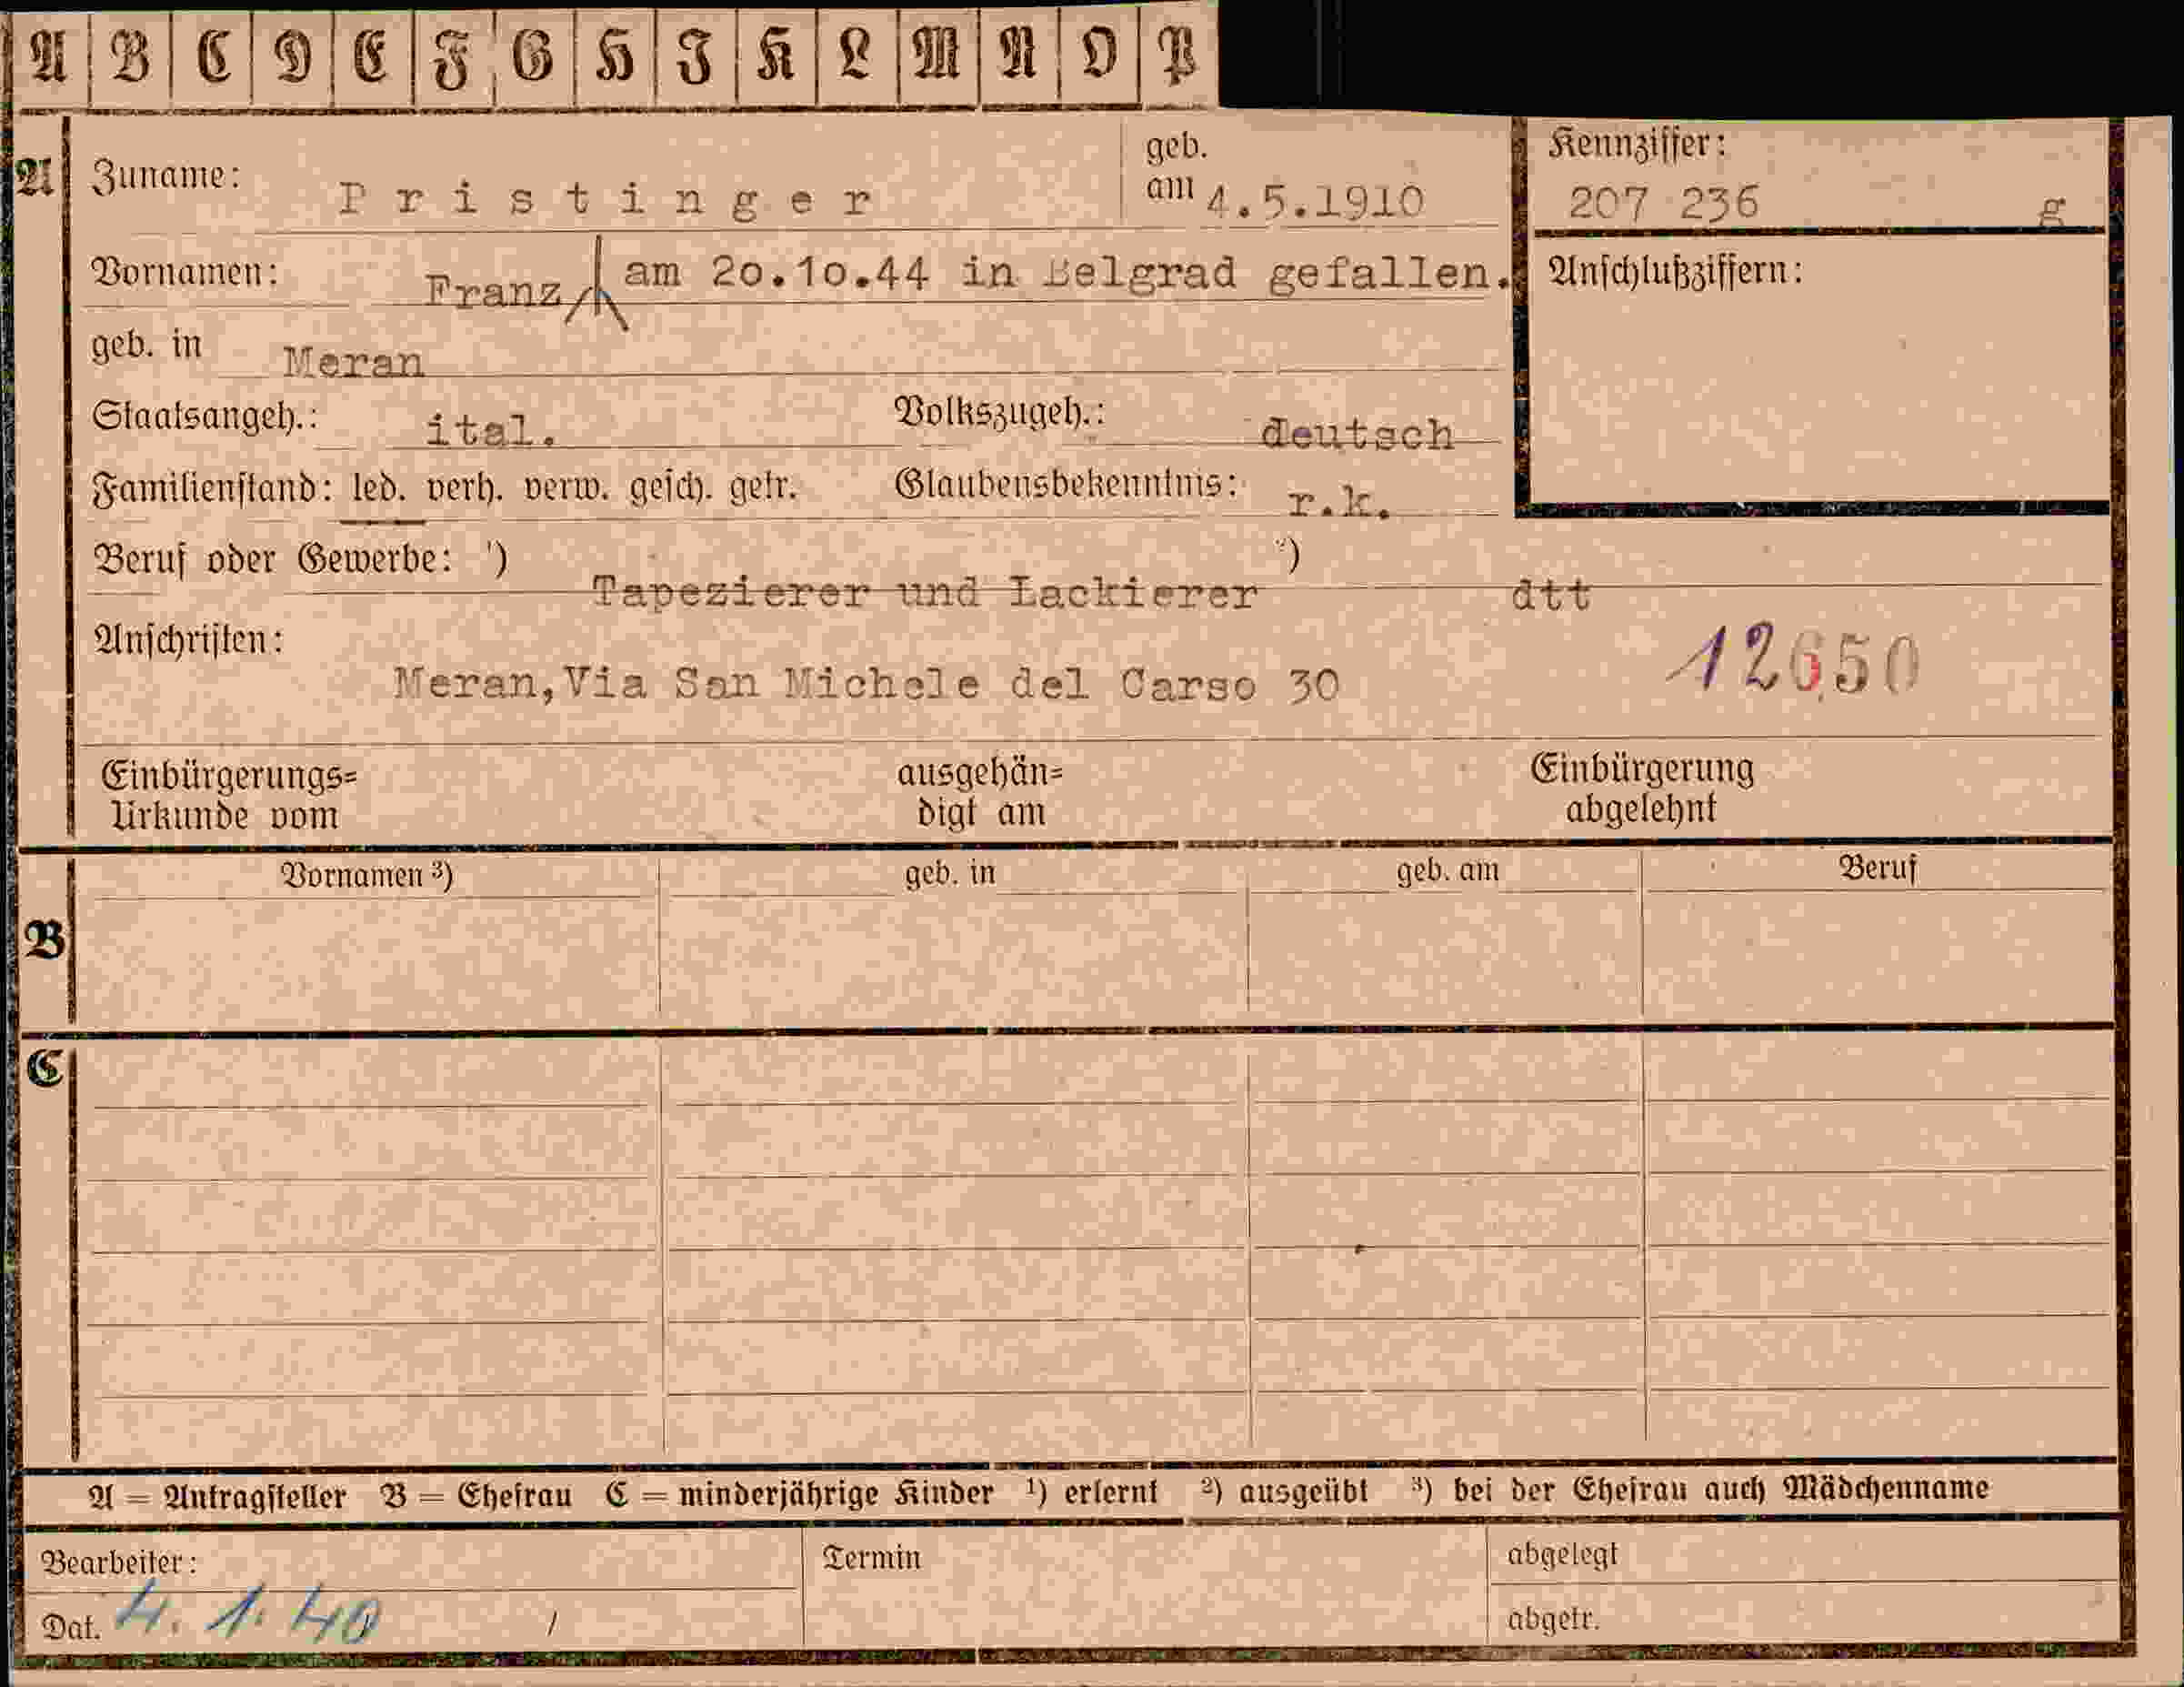 A B C D E F G H I K L M N O P
A Zuname: Pristinger geb. am 4.5.1910 Kennziffer: 207 236 g
Vornamen: Franz am 20.10.44 in Belgrad gefallen. Anschlußziffern:
geb. in Meran
Staatsangeh.: ital. Volkszugeh.: deutsch
Familienstand: led. verh. verw. gesch. getr. Glaubensbekenntnis: r.k.
Beruf oder Gewerbe: ¹) Tapezierer und Lackierer ²) dtt
Anschriften: 12650
Meran,Via San Michele del Carso 30
Einbürgerungs= ausgehän= Einbürgerung
Urkunde vom digt am abgelehnt
Vornamen ³) geb. in geb. am Beruf
B
C
A = Antragsteller B = Ehefrau C = minderjährige Kinder ¹) erlernt ²) ausgeübt ³) bei der Ehefrau auch Mädchenname
Bearbeiter: Termin abgelegt
Dat. 4. 1. 40 / abgetr.